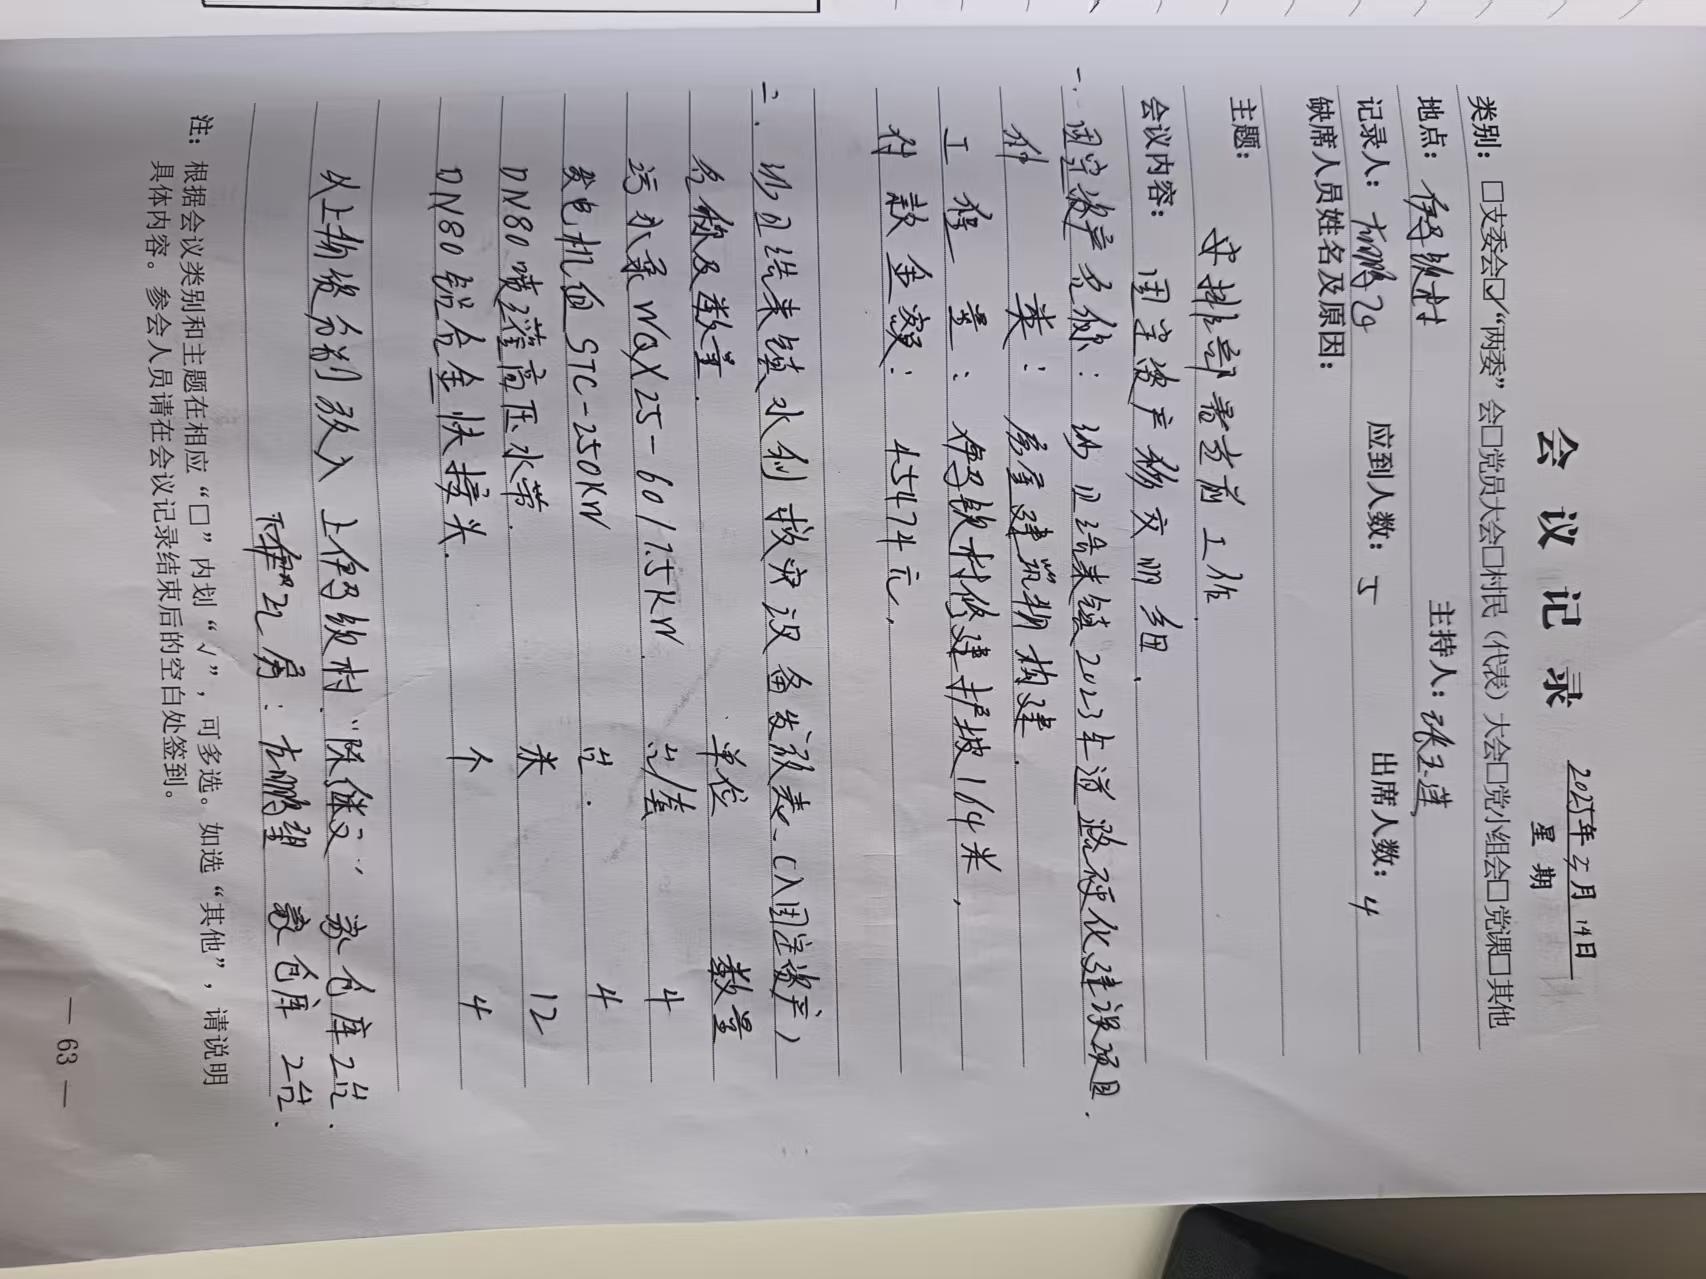 会议记录
2025年5月14日
星期
类别：□支委会☑“两委”会□党员大会□村民（代表）大会□党小组会□党课□其他
地点：
主持人：
记录人：
应到人数：5
出席人数：4
缺席人员姓名及原因：
主题：
安排部署当前工作.
会议内容：固定资产移交明细.
一.固定资产名称：2023年道路硬化建设项目.
种类：房屋建筑物构建.
工程量：村修建护坡164米,
付款金额：45474元,
二.水利救灾设备发放表.(入固定资产)
名称及数量. 单位 数量
污水泵WQX25-60/7.5KW. 台/套 4
发电机组STC-250KW 台. 4
DN80喷灌高压水带. 米 12
DN80铝合金快接头. 个 4
以上物资分别放入上 村. 家仓库2台.
家仓库2台.
注：根据会议类别和主题在相应“□”内划“√”，可多选。如选“其他”，请说明
具体内容。参会人员请在会议记录结束后的空白处签到。
— 63 —